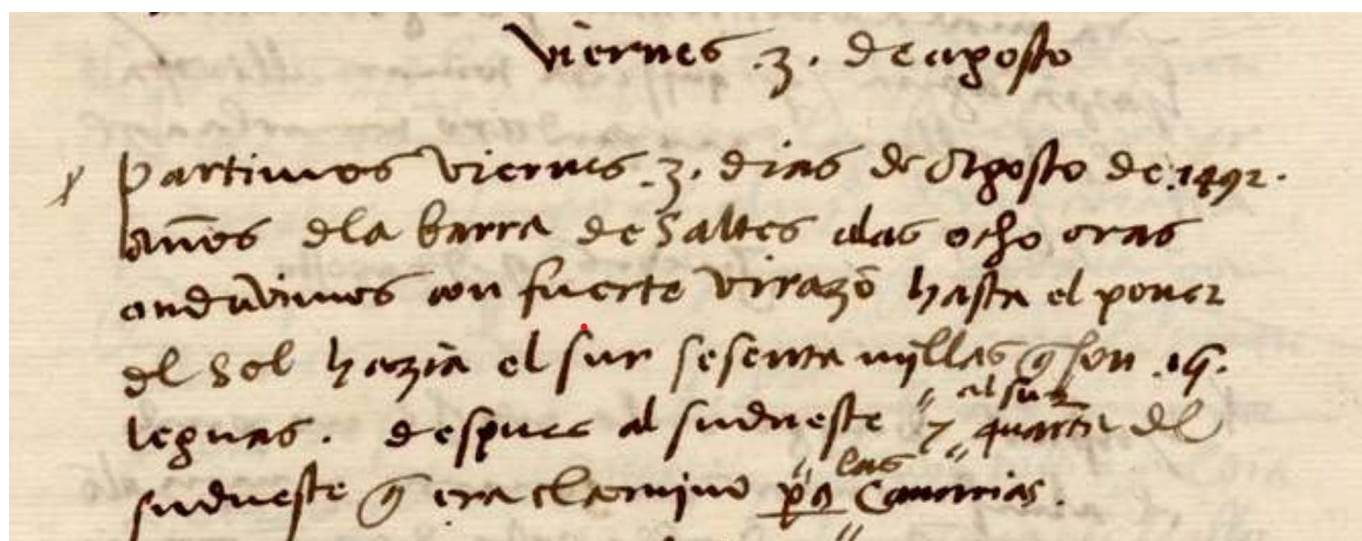 viernes .3. de agosto
partimos viernes .3. dias de Agosto de .1492.
años dla barra de Saltes alas ocho oras
anduvimos con fuerte virazō hasta el poner
del Sol hazia el sur sesenta myllas q̃ son .15.
leguas . despues al sudueste " al sur
y quarta del
sudueste q̃ era el camino " las
pa Canarias .